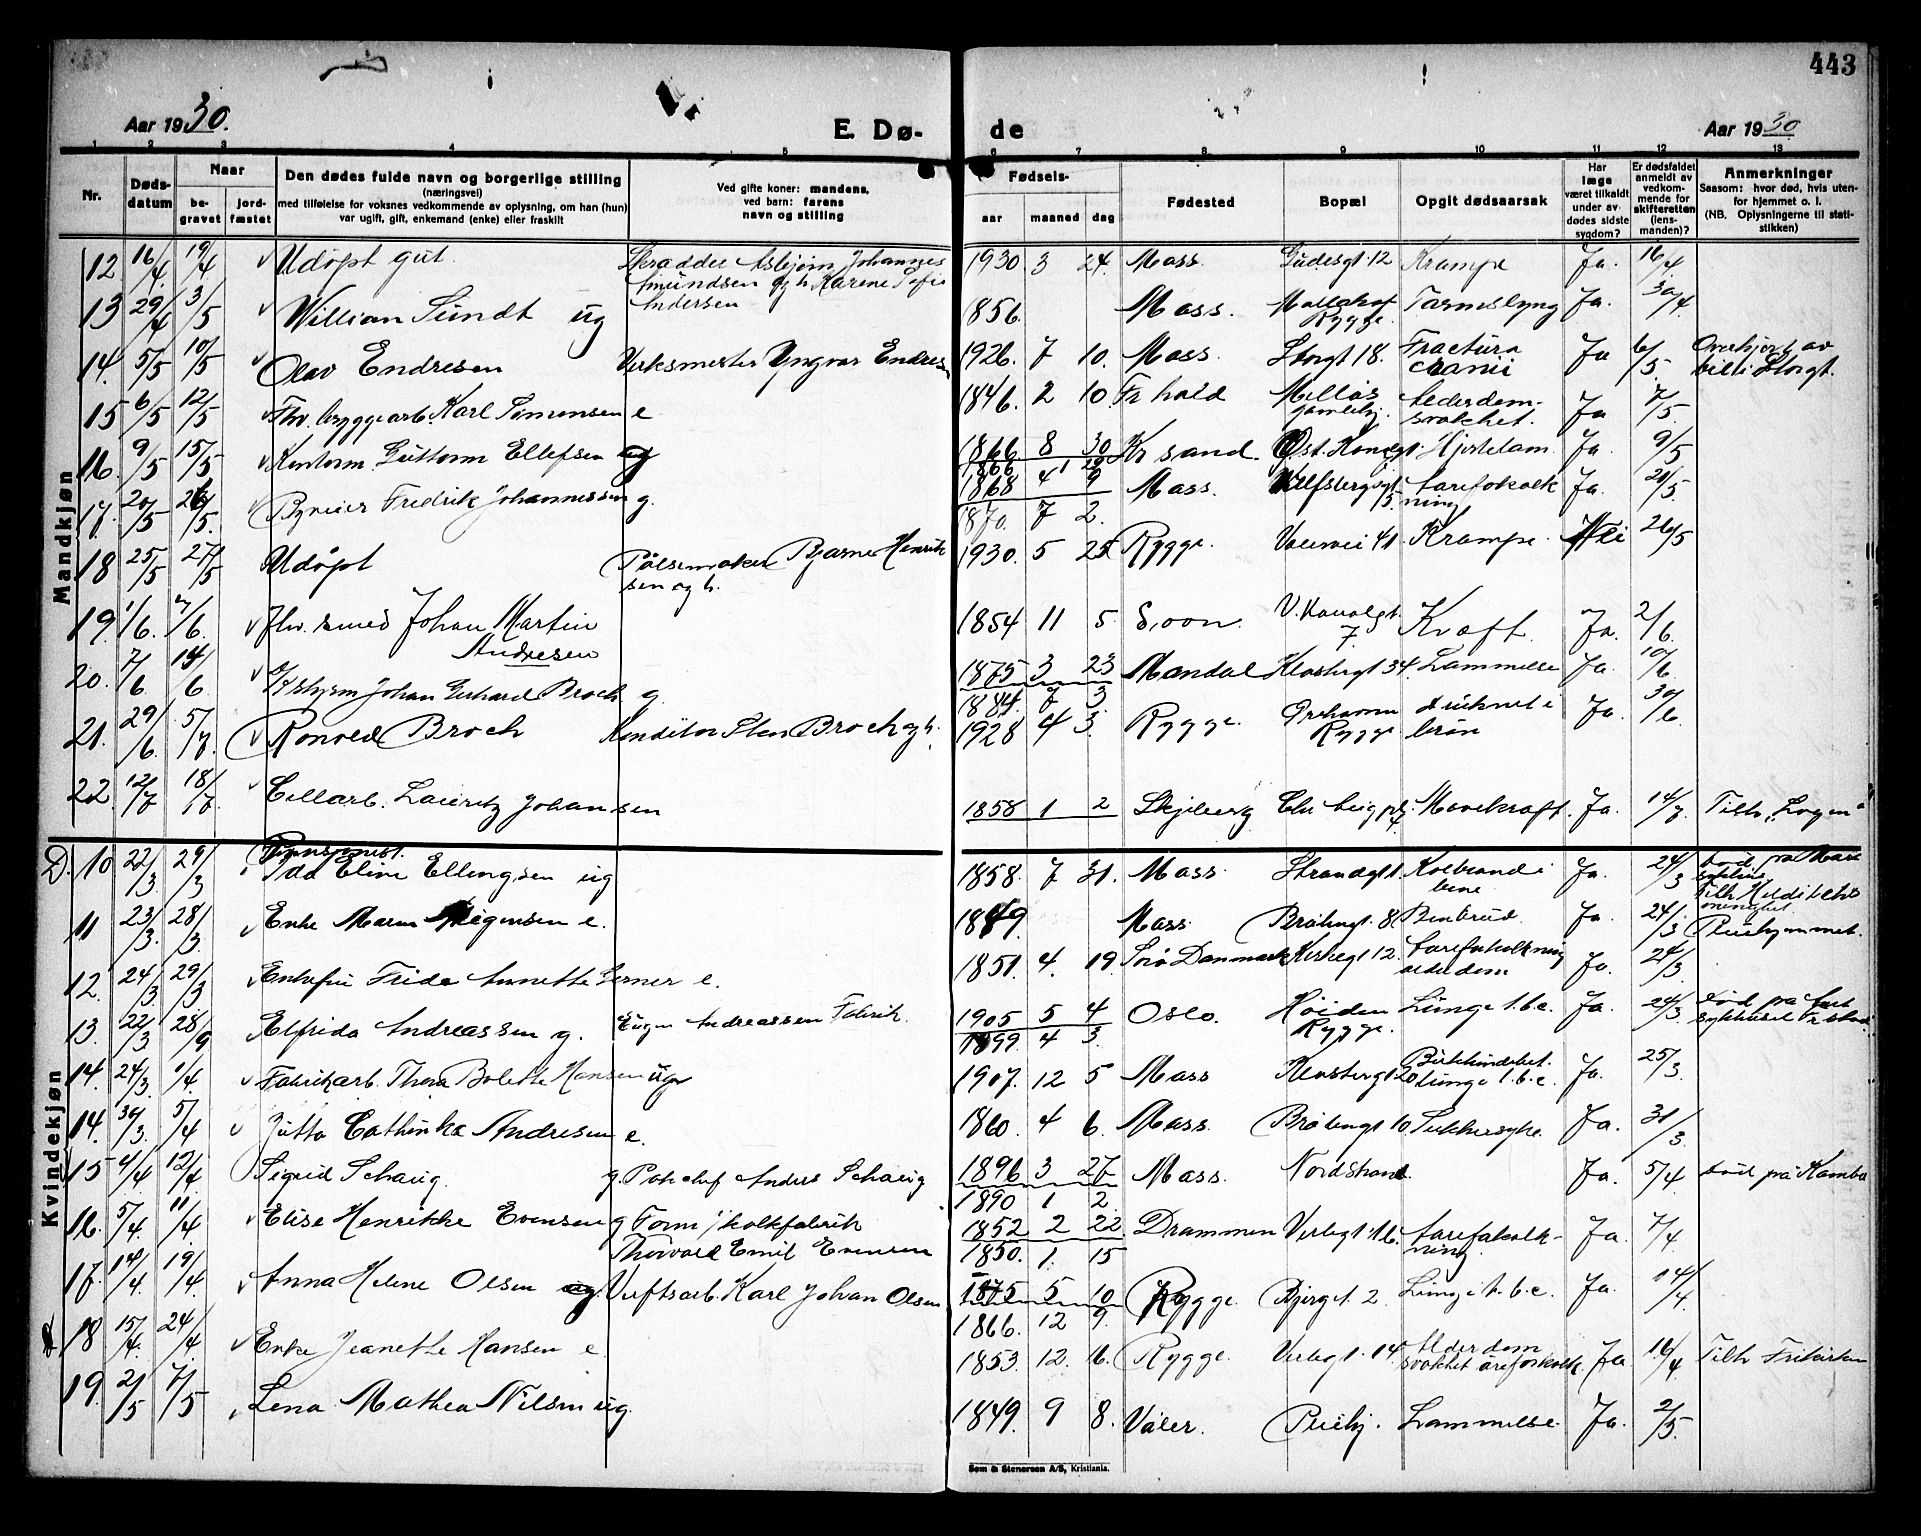 443
Aar 1930. E. Dø- de Aar 1930
1 2 3 4 5 6 7 8 9 10 11 12 13
Nr. Døds-datum Naar be-gravet jord-fæstet Den dødes fulde navn og borgerlige stilling (næringsvei) med tilføielse for voksnes vedkommende av oplysning, om han (hun) var ugift, gift, enkemand (enke) eller fraskilt Ved gifte koner: mandens, ved barn: farens navn og stilling Fødsels- aar maaned dag Fødested Bopæl Opgit dødsaarsak Har læge været tilkaldt under av-dødes sidste sygdom? Er dødsfaldet anmeldt av vedkom-mende for skifteretten (lens-manden)? Anmerkninger Saasom: hvor død, hvis uten-for hjemmet o. l. (NB. Oplysningerne til stati-stikken)
Mandkjøn
12 16/4 19/4 Udøpt gut. Skrædder Asbjørn Johannes Amundsen og h. Karene Sofie Andersen 1930 3 24. Moss. Gudesgt. 12 Krampe Ja. 16/4
13 29/4 3/5 William Sundt ug 1856. Moss. Rygge. Tarmslyng Ja. 30/4
14. 5/5 10/5 Olav Endresen Verksmester Yngvar Endresen 1926. 7 10. Moss. Storgt 18. Fractura cranii Ja 6/5. Overkjørt av bil i Storgt.
15 6/5 12/5 Fhv. bryggearb. Karl Simensen e 1846. 2 10. Fr.hald Melløs Alderdom-svakhet. Ja 7/5.
16. 9/5 15/5 Kontorm. Guttorm Ellefsen ug 1866 8 30 Kr sand. Øst. Kanalgt. Hjertelam. Ja. 9/5
17. 20/5 26/5. Byreier Fredrik Johannessen g. 1868 4 9 Moss. aareforkalk ning Ja. 21/5.
1870. 7 2.
18 25/5 27/5 Udøpt Pølsemaker Bjarne Henrik sen og h. 1930. 5 25 Rygge. Vålervei 41. Krampe. Nei 26/5
19. 1/6. 7/6. Fhv. smed Johan Martin Andresen 1854 11 5. Soon. V. Kanalgt. 7. Kræft. Ja. 2/6.
20. 7/6 14/6 Johan Gerhard Broch g. 1875 3 23 Mandal Klostergt 34. Lammelse Ja. 10/6
1884. 7 3
21. 29/6. 5/7. Ronald Broch Konditor Sten Broch og h. 1928 4 3. Rygge. Rygge druknet i brøn Ja. 30/6.
22. 12/7 18/7. Cellarb. Lauritz Johansen 1858 1 2 Skjeberg Mavekræft. Ja. 14/7. Tilh. "Logen"
Kvindekjøn
D. 10 22/3 29/3 Pensjonist. Ida Eline Ellingsen ug 1858. 7 31. Moss. Strandgt. Koldbrand i bene Ja. 24/3 død på Moss
11 23/3. 28/3 Enke Maren Mogensen e. 1849. Moss. Brålengt. 8 Benbrud. Ja 24/3 Pleiehjemmet.
12. 24/3 29/3 Enkefru Frida Annette Gerner e. 1851. 4. 19. Sorø Danmark Kirkegt 12. aareforkalkning alderdom Ja. 24/3.
13. 22/3 28/3 Elfrida Andreassen g. Eugen Andreassen Fabrik. 1905 5 4 Oslo. Høiden Rygge. Lunge t.b.c. Ja. 24/3.
1899. 4 3.
14. 24/3 1/4. Fabrikarb. Thora Bolette Hansen ug 1907. 12 5 Moss Klostergt. 20 lunge t.b.c. Ja. 25/3.
14. 30/3. 5/4 Jutta Cathinka Andresen e. 1860. 4 6. Moss. Brålengt 10 Sukkersyke. Ja. 31/3.
15 4/4 12/4 Sigrid Schaug. g. Anders Schaug 1896 3 27 Moss. Nordstrand. Ja. 5/4 død på Kambo
1890 1 2.
16. 5/4. 11/4 Elise Henrikke Evensen g Form. i kalkfabrik Thorvald Emil Evensen 1852 2 22. Drammen Verlegt. 16. Aareforkalk-ning. Ja. 7/4.
1850. 1. 15
17. 14/4. 19/4. Anna Helene Olsen g. Verftsarb. Karl Johan Olsen 1875 5 10 Rygge. Bjergt. 2. Lunge t.b.c. Ja. 14/4.
1866. 12 9.
18 15/4. 24/4. Enke Jeanette Hansen e. 1853. 12. 16. Rygge. Verlegt. 14. Alderdom svakhet åreforkalk. Ja 16/4 Tilh. Frikirken
19. 2/5 7/5 Lena Mathea Nilsen ug. 1849. 9 8. Våler. Pleiehj. Lammelse. Ja. 2/5.
Sem & Stenersen A/S, Kristiania.